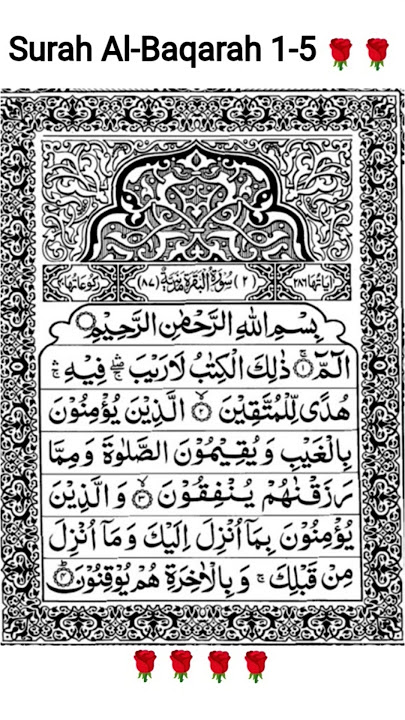 Surah Al-Baqarah 1-5 🌹 🌹
اٰیاتها ٢٨٦ (٢) سُوْرَةُ الْبَقَرَةِ مَدَنِيَّةٌ (٨٧) رکوعاتها ٤٠
بِسْمِ اللّٰهِ الرَّحْمٰنِ الرَّحِيْمِ
الٓمّٓ ۝١ ذٰلِكَ الْكِتٰبُ لَا رَيْبَ ۛۚ فِيْهِ ۛۚ
هُدًى لِّلْمُتَّقِيْنَ ۝٢ الَّذِيْنَ يُؤْمِنُوْنَ
بِالْغَيْبِ وَيُقِيْمُوْنَ الصَّلٰوةَ وَمِمَّا
رَزَقْنٰهُمْ يُنْفِقُوْنَ ۝٣ وَالَّذِيْنَ
يُؤْمِنُوْنَ بِمَآ اُنْزِلَ اِلَيْكَ وَمَآ اُنْزِلَ
مِنْ قَبْلِكَ ۚ وَبِالْاٰخِرَةِ هُمْ يُوْقِنُوْنَ ۝٤
🌹 🌹 🌹 🌹